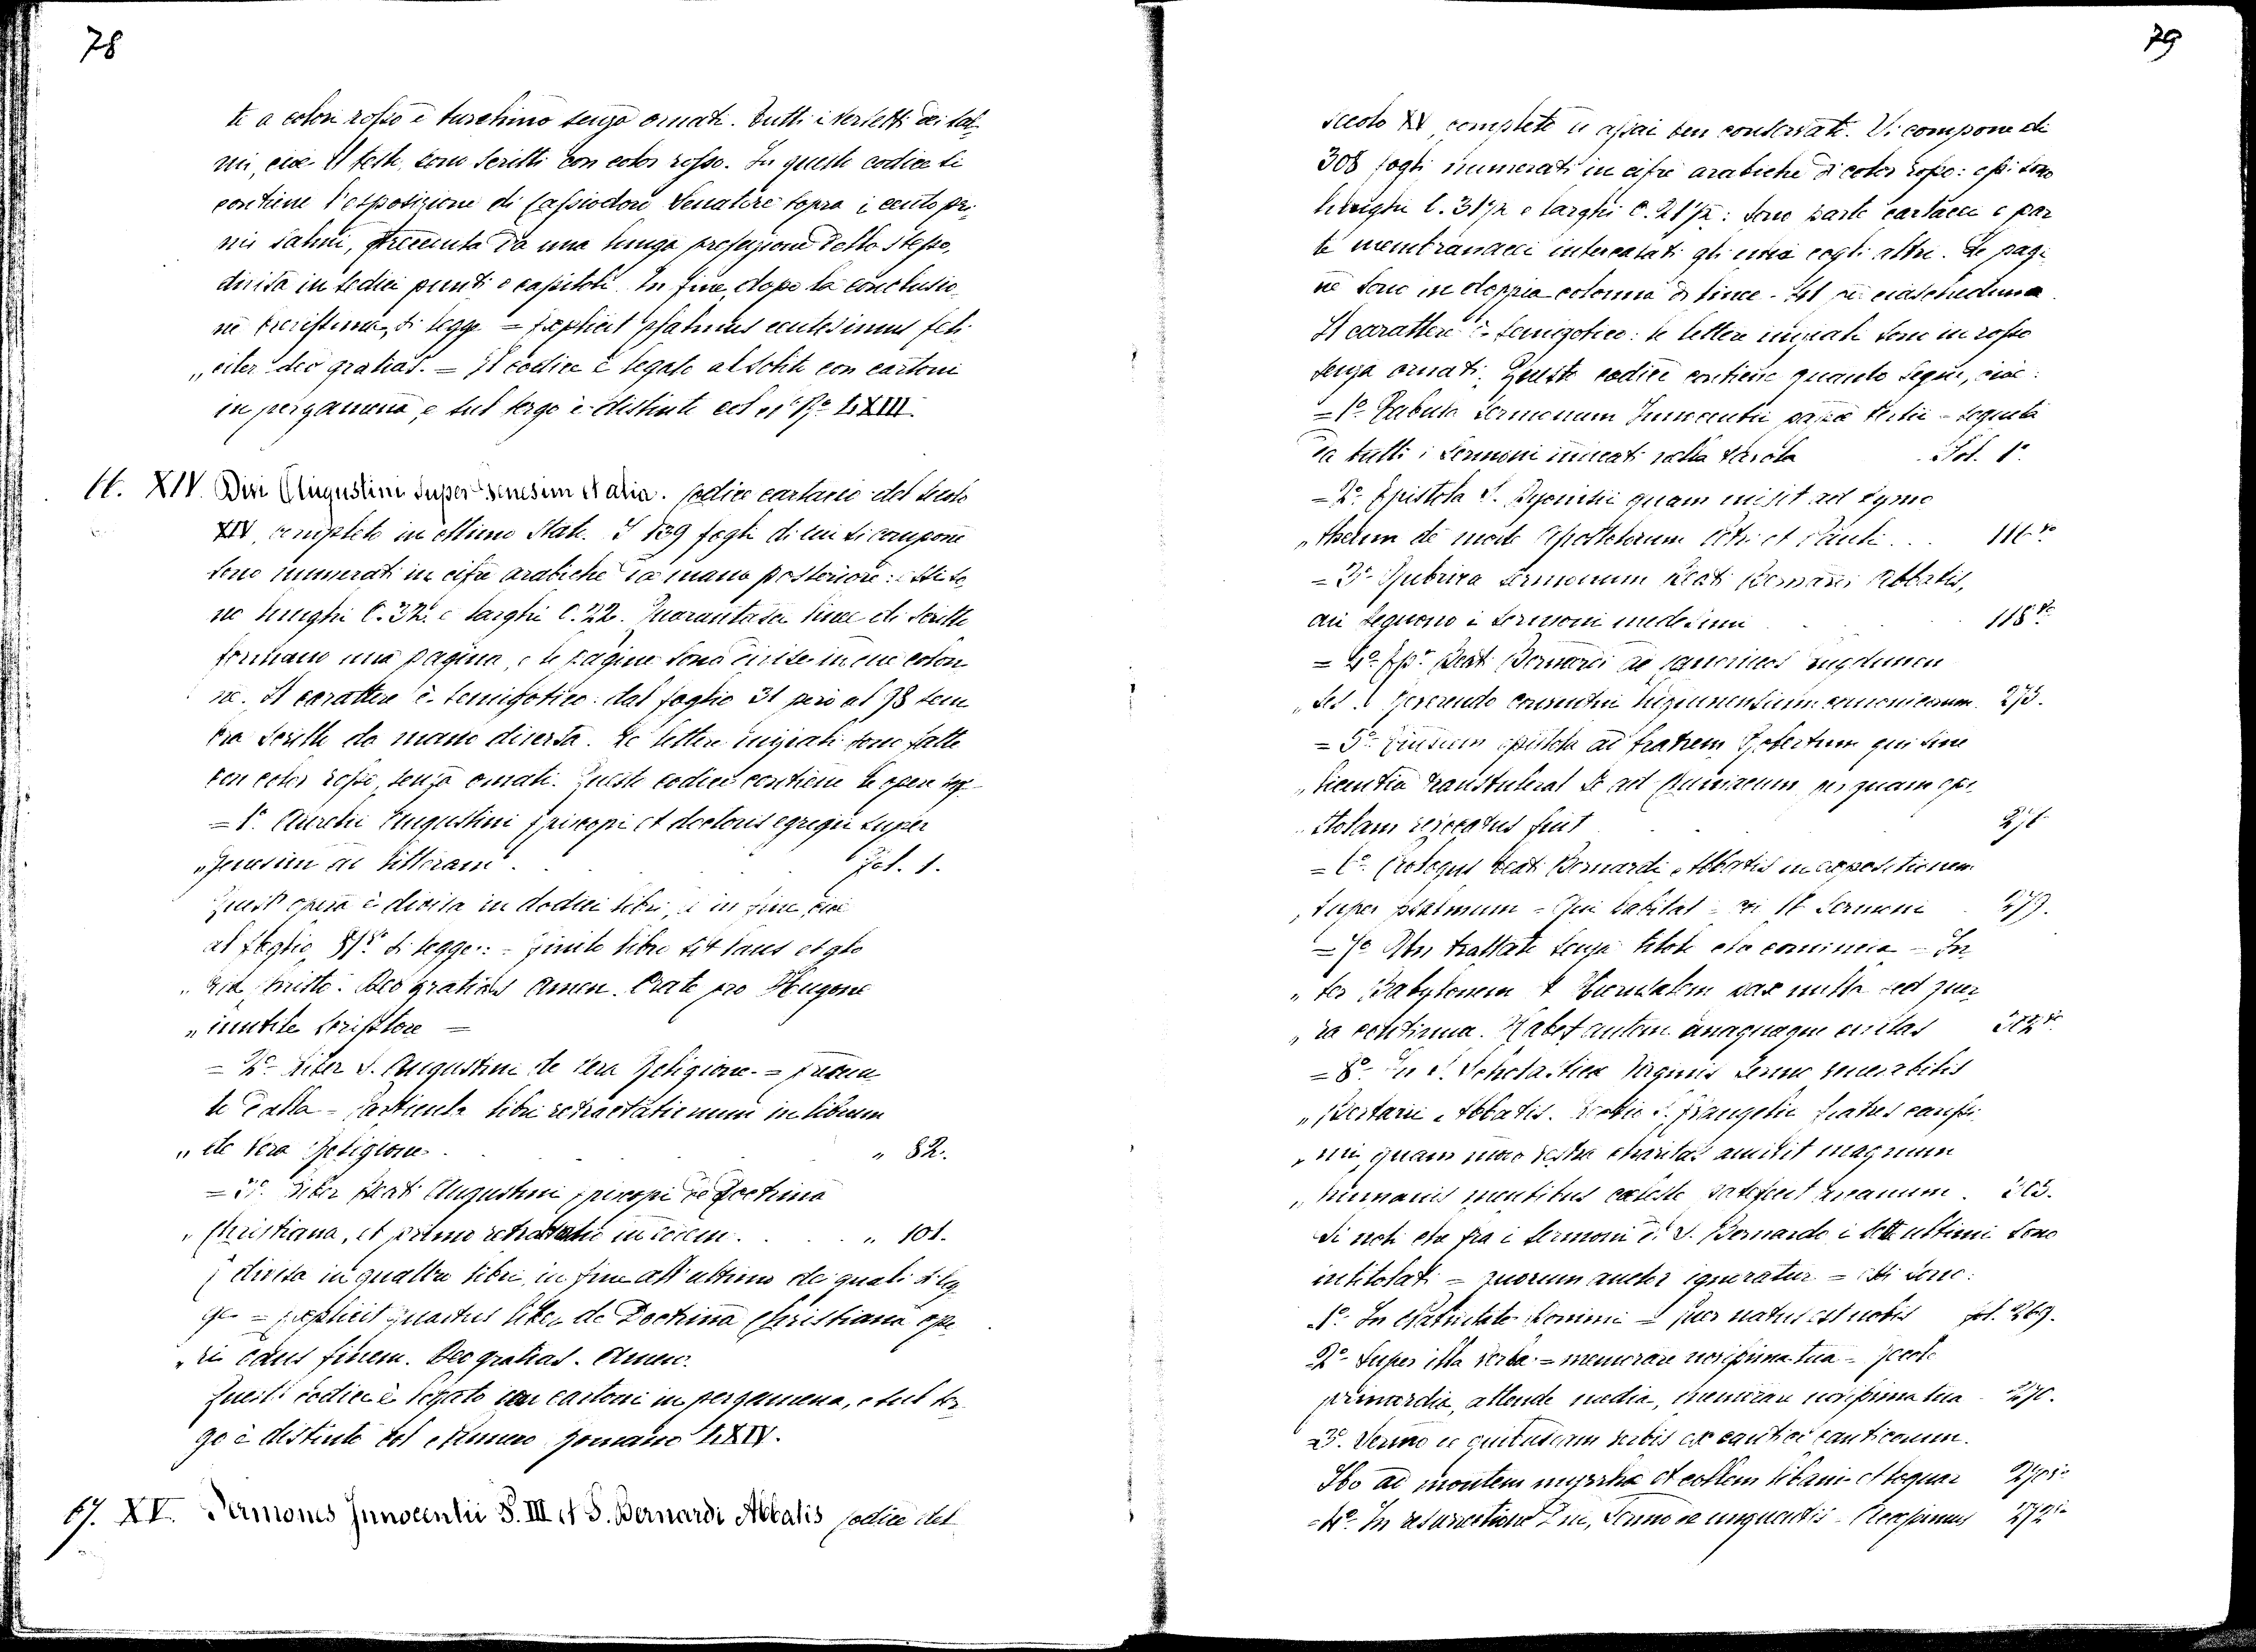 78
te a color rosso e turchino senza ornati. Tutti i versetti dei sal-
mi, cioè il testo, sono scritti con color rosso. In questo codice si
contiene l'esposizione di Cassiodoro Senatore sopra i cento pri-
mi salmi, preceduta da una lunga prefazione dello stesso,
divisa in sedici punti o capitoli. In fine, dopo la conclusio-
ne si legge = Explicit psalmus centesimus feli-
„ citer deo gratias. = Il codice è legato al solito con cartoni
in pergamena, e sul tergo è distinto col n.° R.° LXIII.
XIV. Divi Augustini super Genesim et alia. Codice cartaceo del secolo
XIV, completo in ottimo stato. I 139 fogli di cui si compone
sono numerati in cifre arabiche da mano posteriore: essi so-
no lunghi C. 32. e larghi C. 22. Quarantasei linee di scritto
formano una pagina, e le pagine sono divise in due colon-
ne. Il carattere è semigotico: dal foglio 31 però al 98 sem-
bra scritto da mano diversa. Le lettere iniziali sono fatte
con color rosso, senza ornati. Questo codice contiene le opere
= 1.° Aurelii Augustini Episcopi et doctoris egregii super
„ Genesim ad litteram . . . Fol. 1.
Quest'opera è divisa in dodici libri, e in fine, cioè
al foglio si legge: = Finito libro sit laus et glo-
„ ria Christo. Deo gratias Amen. Orate pro Hugone
„ inutile scriptore =
= 2.° Liber S. Augustini de Vera Religione. = preceden-
te dalla = Particula libri retractationum in librum
„ de Vera Religione . . . „ 82.
= 3.° Liber Beati Augustini Episcopi de Doctrina
„ Christiana, et primo retractatio in eodem . . . „ 101.
È divisa in quattro libri, in fine all'ultimo dei quali si leg-
ge = Explicit quartus liber de Doctrina Christiana ope-
„ ri dans finem. Deo gratias. Amen.
Questo codice è legato con cartoni in pergamena, e sul ter-
go è distinto col Numero Romano LXIV.
67. XV. Sermones Innocentii P. III et S. Bernardi Abbatis Codice del
79
secolo XV, completo e assai ben conservato. Si compone di
308 fogli numerati in cifre arabiche di color rosso: essi sono
lunghi C. 31½ e larghi C. 21½: sono parte cartacei e par-
te membranacei intercalati gli uni cogli altri. Le pagi-
ne sono in doppia colonna di linee 41 per ciascheduna.
Il carattere è semigotico: le lettere iniziali sono in rosso
senza ornati. Questo codice contiene quanto segue, cioè:
= 1.° Tabula sermonum Innocentii papae tertii = seguita
da tutti i Sermoni indicati nella tavola Fol. 1.
= 2.° Epistola S. Dyonisii quam misit ad Tymo-
„ theum de morte Apostolorum Petri et Pauli . . . 116 vo
= 3.° Rubrica sermonum Beati Bernardi Abbatis,
cui seguono i sermoni medesimi . . . 118 vo
= 4.° Ep.a Beati Bernardi ad canonicos lugdunen-
„ ses. canonicorum. 275.
= 5.° Eiusdem epistola ad fratrem Robertum qui sine
„ licentia transtulerat se ad Cluniacum, per quam epi-
„ stolam revocatus fuit . . .
= 6.° Prologus Beati Bernardi Abbatis in expositionem
„ super psalmum = Qui habitat = Sermoni . 279.
= 7.° Altro trattato senza titolo che comincia = In-
„ ter Babylonem et Hierusalem pax nulla sed guer-
„ ra continua. Habet autem unaquaeque civitas 302 vo
= 8.° In S. Scholastica Virginis sermo venerabilis
„ Bertarii Abbatis. Lectio S. Evangelii fratres carissi-
„ mi, quam modo vestra charitas audivit magnum
„ humanis mentibus caeleste patefecit arcanum. 303.
Si noti che fra i sermoni di S. Bernardo i sette ultimi sono
intitolati = quorum auctor ignoratur = Essi sono:
1.° In Nativitate Domini = Puer natus est nobis fol. 269.
2.° Super illa verba = memorare novissima tua =
primordia, attende media, memorare novissima tua 270.
3.° Sermo de quibusdam verbis ex cantico canticorum.
Ibo ad montem myrrhae et collem libani et loquar
= 4.° In resurectione D.ni, Sermo de unguentis = Accepimus